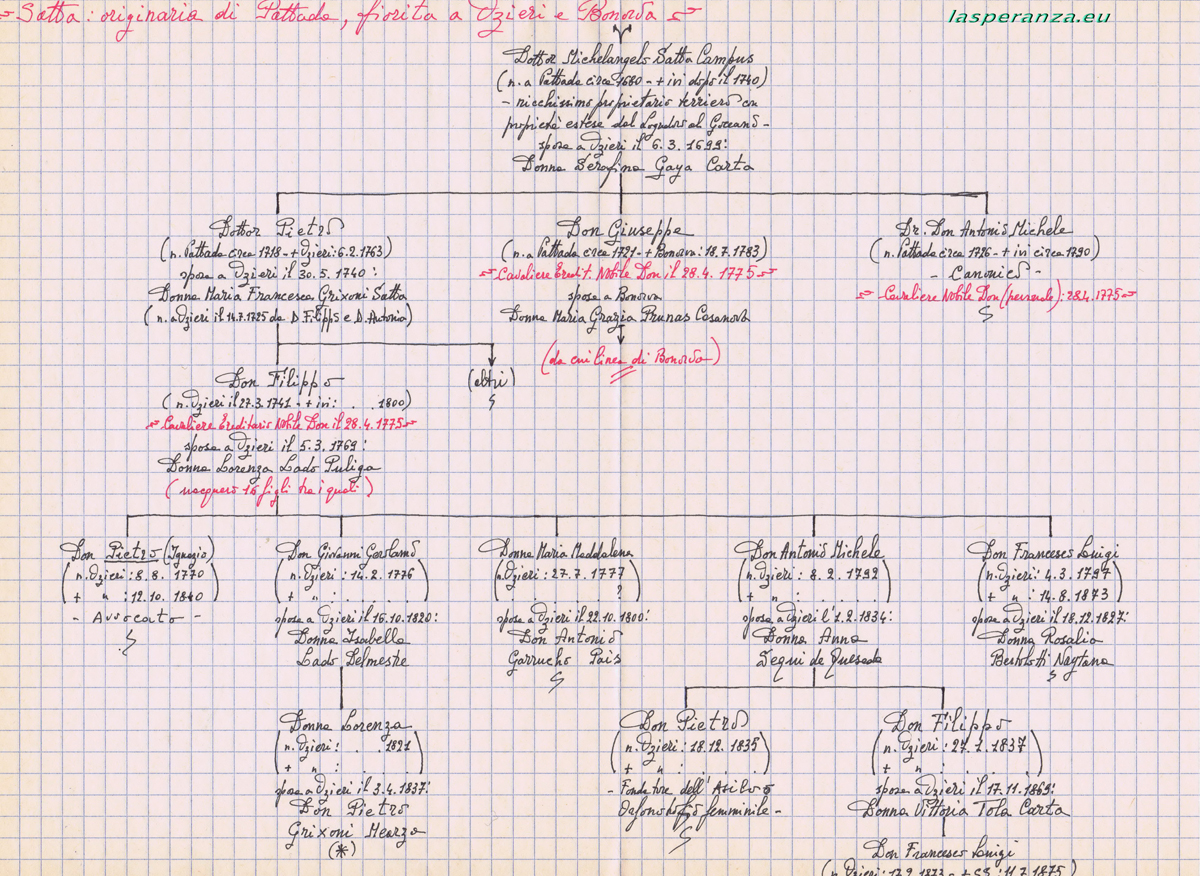 Satta: originaria di Pattada, fiorita a Ozieri e Bonorva
lasperanza.eu
Dottor Michelangelo Satta Campus
(n. a Pattada circa 1680 - + ivi dopo il 1740)
- ricchissimo proprietario terriero con
proprietà estese dal Logudoro al Goceano -
sposa a Ozieri il 6.3.1699:
Donna Serafina Gaya Carta
Dottor Pietro
(n. Pattada circa 1718 - + Ozieri: 6.2.1763)
sposa a Ozieri il 30.5.1740:
Donna Maria Francesca Grixoni Satta
(n. a Ozieri il 14.7.1725 da D. Filippo e D. Antonia)
Don Giuseppe
(n. a Pattada circa 1721 - + Bonorva: 18.7.1783)
Cavaliere Eredit. Nobile Don il 28.4.1775
sposa a Bonorva
Donna Maria Grazia Prunas Casanova
(da cui linea di Bonorva)
Dr. Don Antonio Michele
(n. Pattada circa 1726 - + ivi circa 1790)
- Canonico -
Cavaliere Nobile Don (personale): 28.4.1775
(altri)
Don Filippo
(n. Ozieri il 27.3.1741 - + ivi: . . 1800)
Cavaliere Ereditario Nobile Don il 28.4.1775
sposa a Ozieri il 5.3.1769:
Donna Lorenza Lado Puliga
(nacquero 16 figli tra i quali)
Don Pietro (Ignazio)
(n. Ozieri: 8.8.1770
+ " : 12.10.1840)
- Avvocato -
Don Giovanni Gerolamo
(n. Ozieri: 14.2.1776
+ " : . . . )
sposa a Ozieri il 16.10.1820:
Donna Isabella
Lado Delmestre
Donna Maria Maddalena
(n. Ozieri: 27.7.1777
. . . . ?)
sposa a Ozieri il 22.10.1800:
Don Antonio
Garrucho Pais
Don Antonio Michele
(n. Ozieri: 8.2.1792
+ " : . . . )
sposa a Ozieri l'1.2.1834:
Donna Anna
Segui de Quesada
Don Francesco Luigi
(n. Ozieri: 4.3.1797
+ " : 14.8.1873)
sposa a Ozieri il 18.12.1827:
Donna Rosalia
Bertolotti Naytana
Donna Lorenza
(n. Ozieri: . . 1821
+ " : . . . )
sposa a Ozieri il 3.4.1837:
Don Pietro
Grixoni Mearza
(*)
Don Pietro
(n. Ozieri: 18.12.1835
+ " : . . . )
- Fondatore dell'Asilo e
Orfanotrofio femminile -
Don Filippo
(n. Ozieri: 27.1.1837
+ " : . . . )
sposa a Ozieri il 17.11.1869:
Donna Vittoria Tola Carta
Don Francesco Luigi
(n. Ozieri: 17.9.1873 - + SS: 11.7.1875)